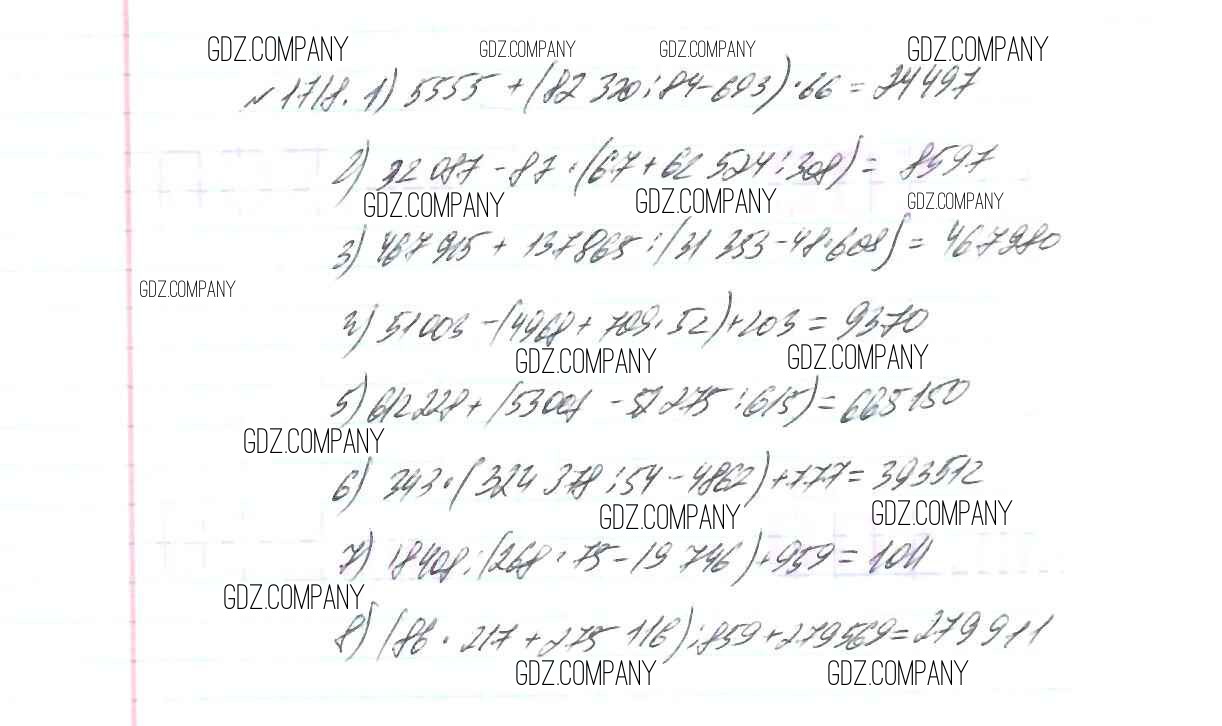 GDZ.COMPANY GDZ.COMPANY GDZ.COMPANY GDZ.COMPANY
№1718. 1) 5555 + (82 320 : 84 - 693) · 66 = 24497
2) 32 087 - 87 · (67 + 62 524 : 308) = 8597
GDZ.COMPANY GDZ.COMPANY GDZ.COMPANY
3) 467 915 + 137 865 : (31 353 - 48 · 608) = 467980
GDZ.COMPANY
4) 51 003 - (4968 + 709 · 52) + 203 = 9370
GDZ.COMPANY GDZ.COMPANY
5) 612 228 + (53 001 - 51 275 : 615) = 665150
GDZ.COMPANY
6) 343 · (324 378 : 54 - 4862) + 777 = 393512
GDZ.COMPANY GDZ.COMPANY
7) 18408 : (268 · 75 - 19 746) + 959 = 1011
GDZ.COMPANY
8) (86 · 217 + 275 116) : 859 + 279569 = 279911
GDZ.COMPANY GDZ.COMPANY